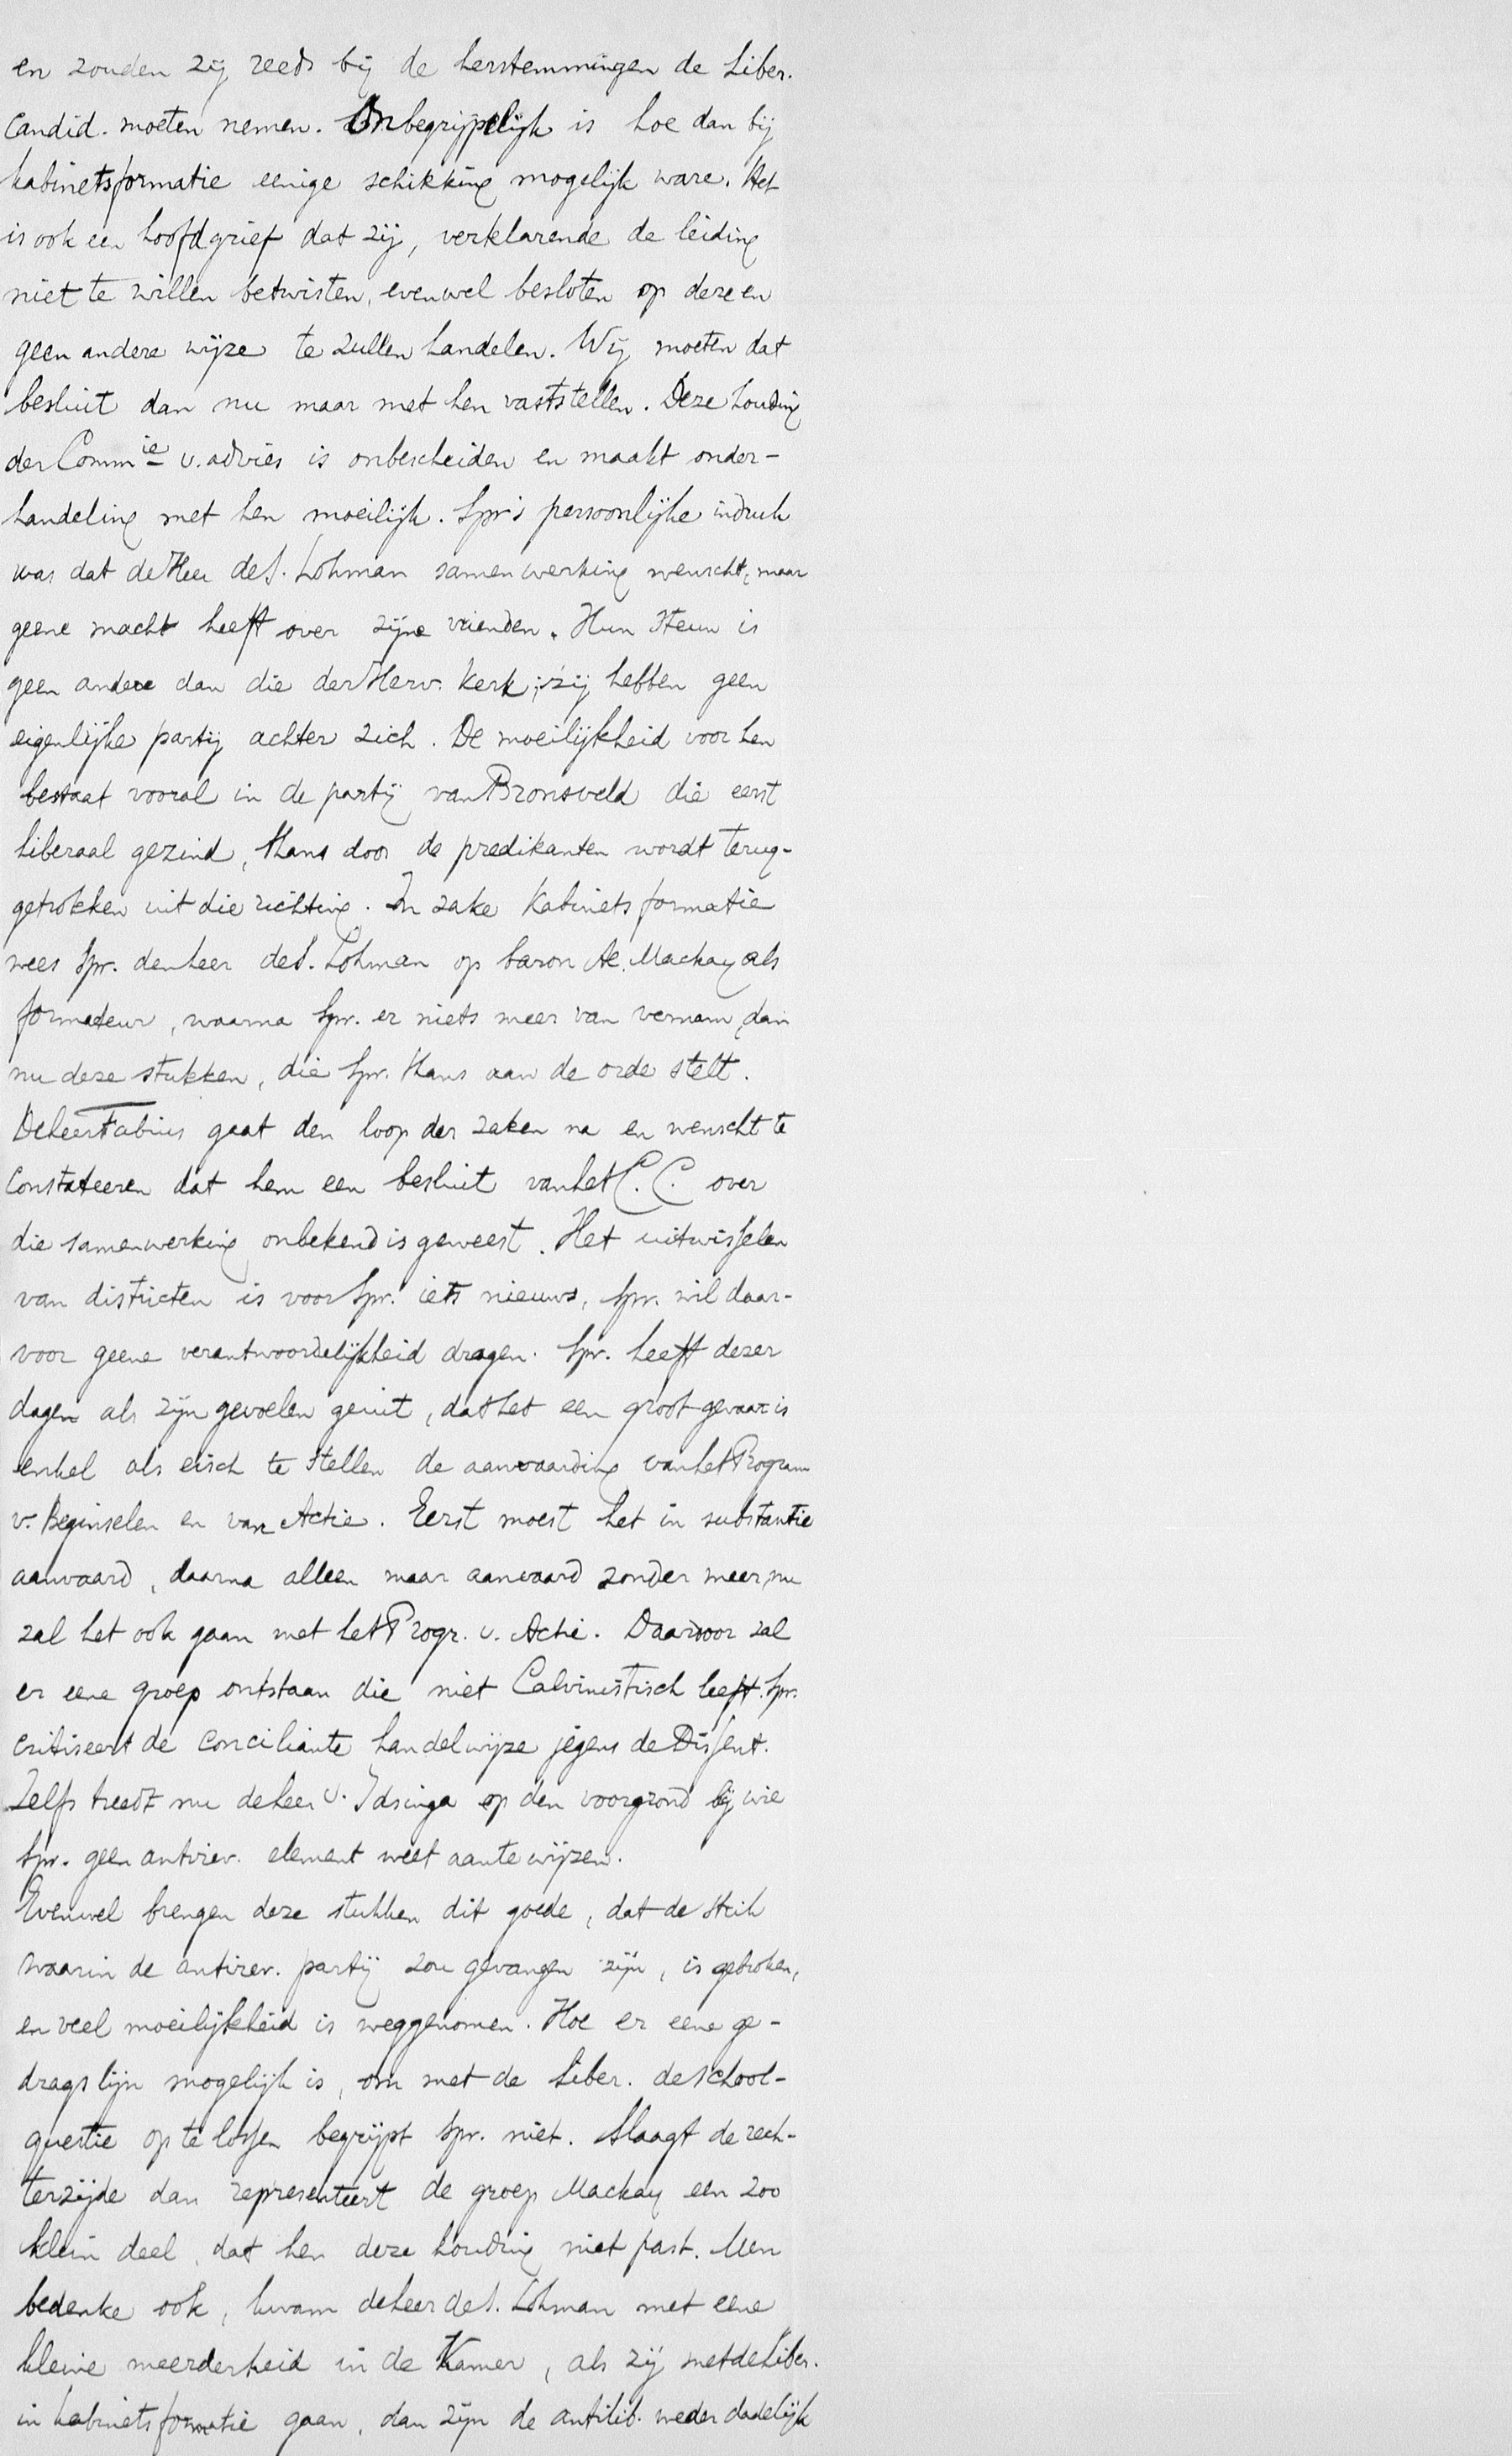 en zouden zij reeds bij de herstemmingen de Liber.
Candid. moeten nemen. Onbegrijpelijk is hoe dan bij
kabinetsformatie eenige schikking mogelijk ware. Het
is ook een hoofdgrief dat zij, verklarende de leiding
niet te willen betwisten, evenwel besloten op deze en
geen andere wijze te zullen handelen. Wij moeten dat
besluit dan nu maar met hen vaststellen. Deze houding
der Commie v. advies is onbescheiden en maakt onder-
handeling met hen moeilijk. Spr's persoonlijke indruk
was dat de Heer de S. Lohman samenwerking wenscht, maar
geene macht heeft over zijne vrienden. Hun steun is
geen andere dan die der Herv. Kerk; zij hebben geen
eigenlijke partij achter zich. De moeilijkheid voor hen
bestaat vooral in de partij van Bronsveld die eerst
liberaal gezind, thans door de predikanten wordt terug-
getrokken uit die richting. In zake Kabinetsformatie
wees Spr. den heer de S. Lohman op baron Ae. Mackay als
formateur, waarna Spr. er niets meer van vernam, dan
nu deze stukken, die Spr. thans aan de orde stelt.
De heer Fabius gaat den loop der zaken na en wenscht te
Constateeren dat hem een besluit van het C. C. over
die samenwerking onbekend is geweest. Het uitwisselen
van districten is voor Spr. iets nieuws, Spr. wil daar-
voor geene verantwoordelijkheid dragen. Spr. heeft dezer
dagen als zijn gevoelen geuit, dat het een groot gevaar is
enkel als eisch te stellen de aanvaarding van het Program
v. Beginselen en van Actie. Eerst moest het in substantie
aanvaard, daarna alleen maar aanvaard zonder meer, nu
zal het ook gaan met het Progr. v. Actie. Daardoor zal
er eene groep ontstaan die niet Calvinistisch leeft. Spr.
critiseert de conciliante handelwijze jegens de Dissent.
Zelfs treedt nu de heer v. Idsinga op den voorgrond bij wie
Spr. geen antirev. element weet aan te wijzen.
Evenwel brengen deze stukken dit goede, dat de strik
waarin de antirev. partij zou gevangen zijn, is gebroken,
en veel moeilijkheid is weggenomen. Hoe er eene ge-
dragslijn mogelijk is, om met de Liber. de school-
questie op te lossen begrijpt Spr. niet. Slaagt de rech-
terzijde dan representeert de groep Mackay een zoo
klein deel, dat hen deze houding niet past. Men
bedenke ook, kwam de heer de S. Lohman met eene
kleine meerderheid in de Kamer, als zij met de Liber.
in kabinetsformatie gaan, dan zijn de antilib. weder dadelijk